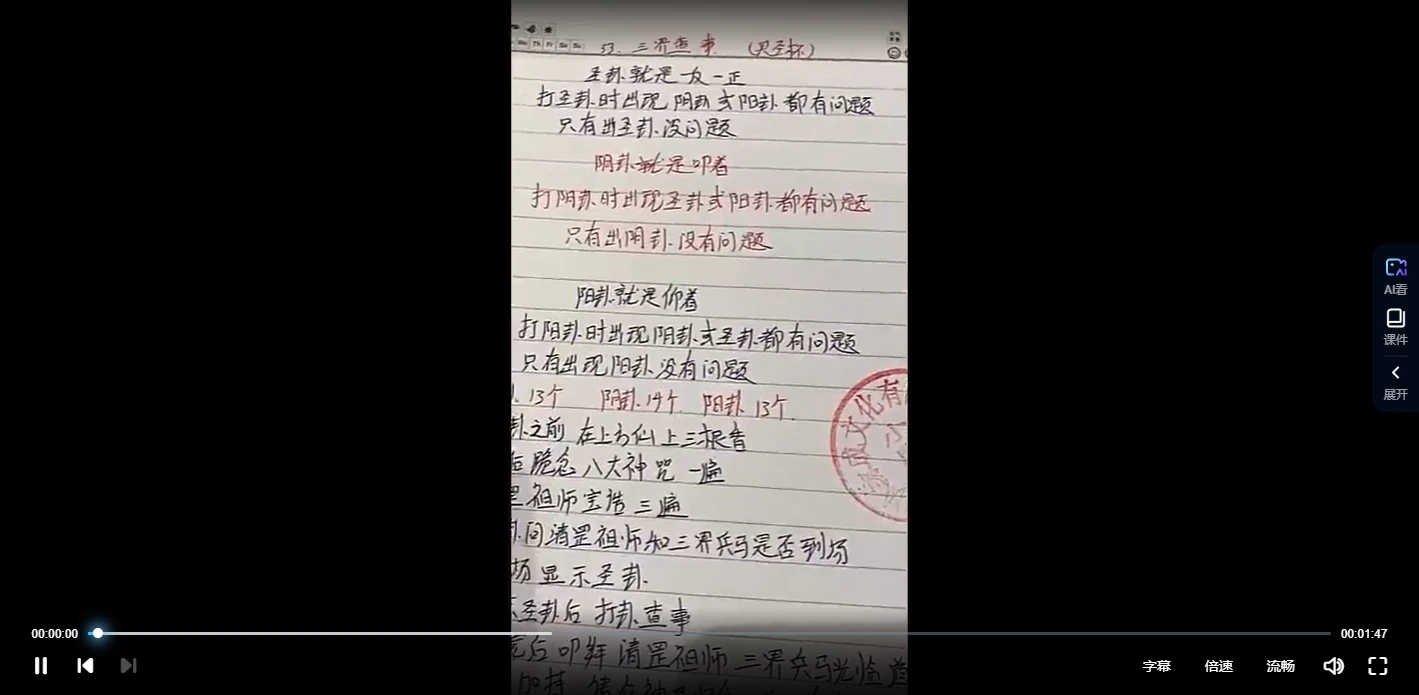 We Th Fr Sa Su
53. 三界查事 (灵圣杯)
圣卦就是一反一正
打圣卦时出现阴卦或阳卦都有问题
只有出圣卦没问题
阴卦就是叩着
打阴卦时出现圣卦或阳卦都有问题
只有出阴卦没有问题
阳卦就是仰着
打阳卦时出现阴卦或圣卦都有问题
只有出现阳卦没有问题
13个 阴卦14个 阳卦13个
卦之前 在上方仙上三根香
后跪念八大神咒一遍
罡祖师宝诰三遍
卦问清罡祖师和三界兵马是否到场
场显示圣卦
示圣卦后 打卦查事
完后叩拜清罡祖师三界兵马光临
加持
文化有
AI看
课件
展开
00:00:00
00:01:47
字幕
倍速
流畅